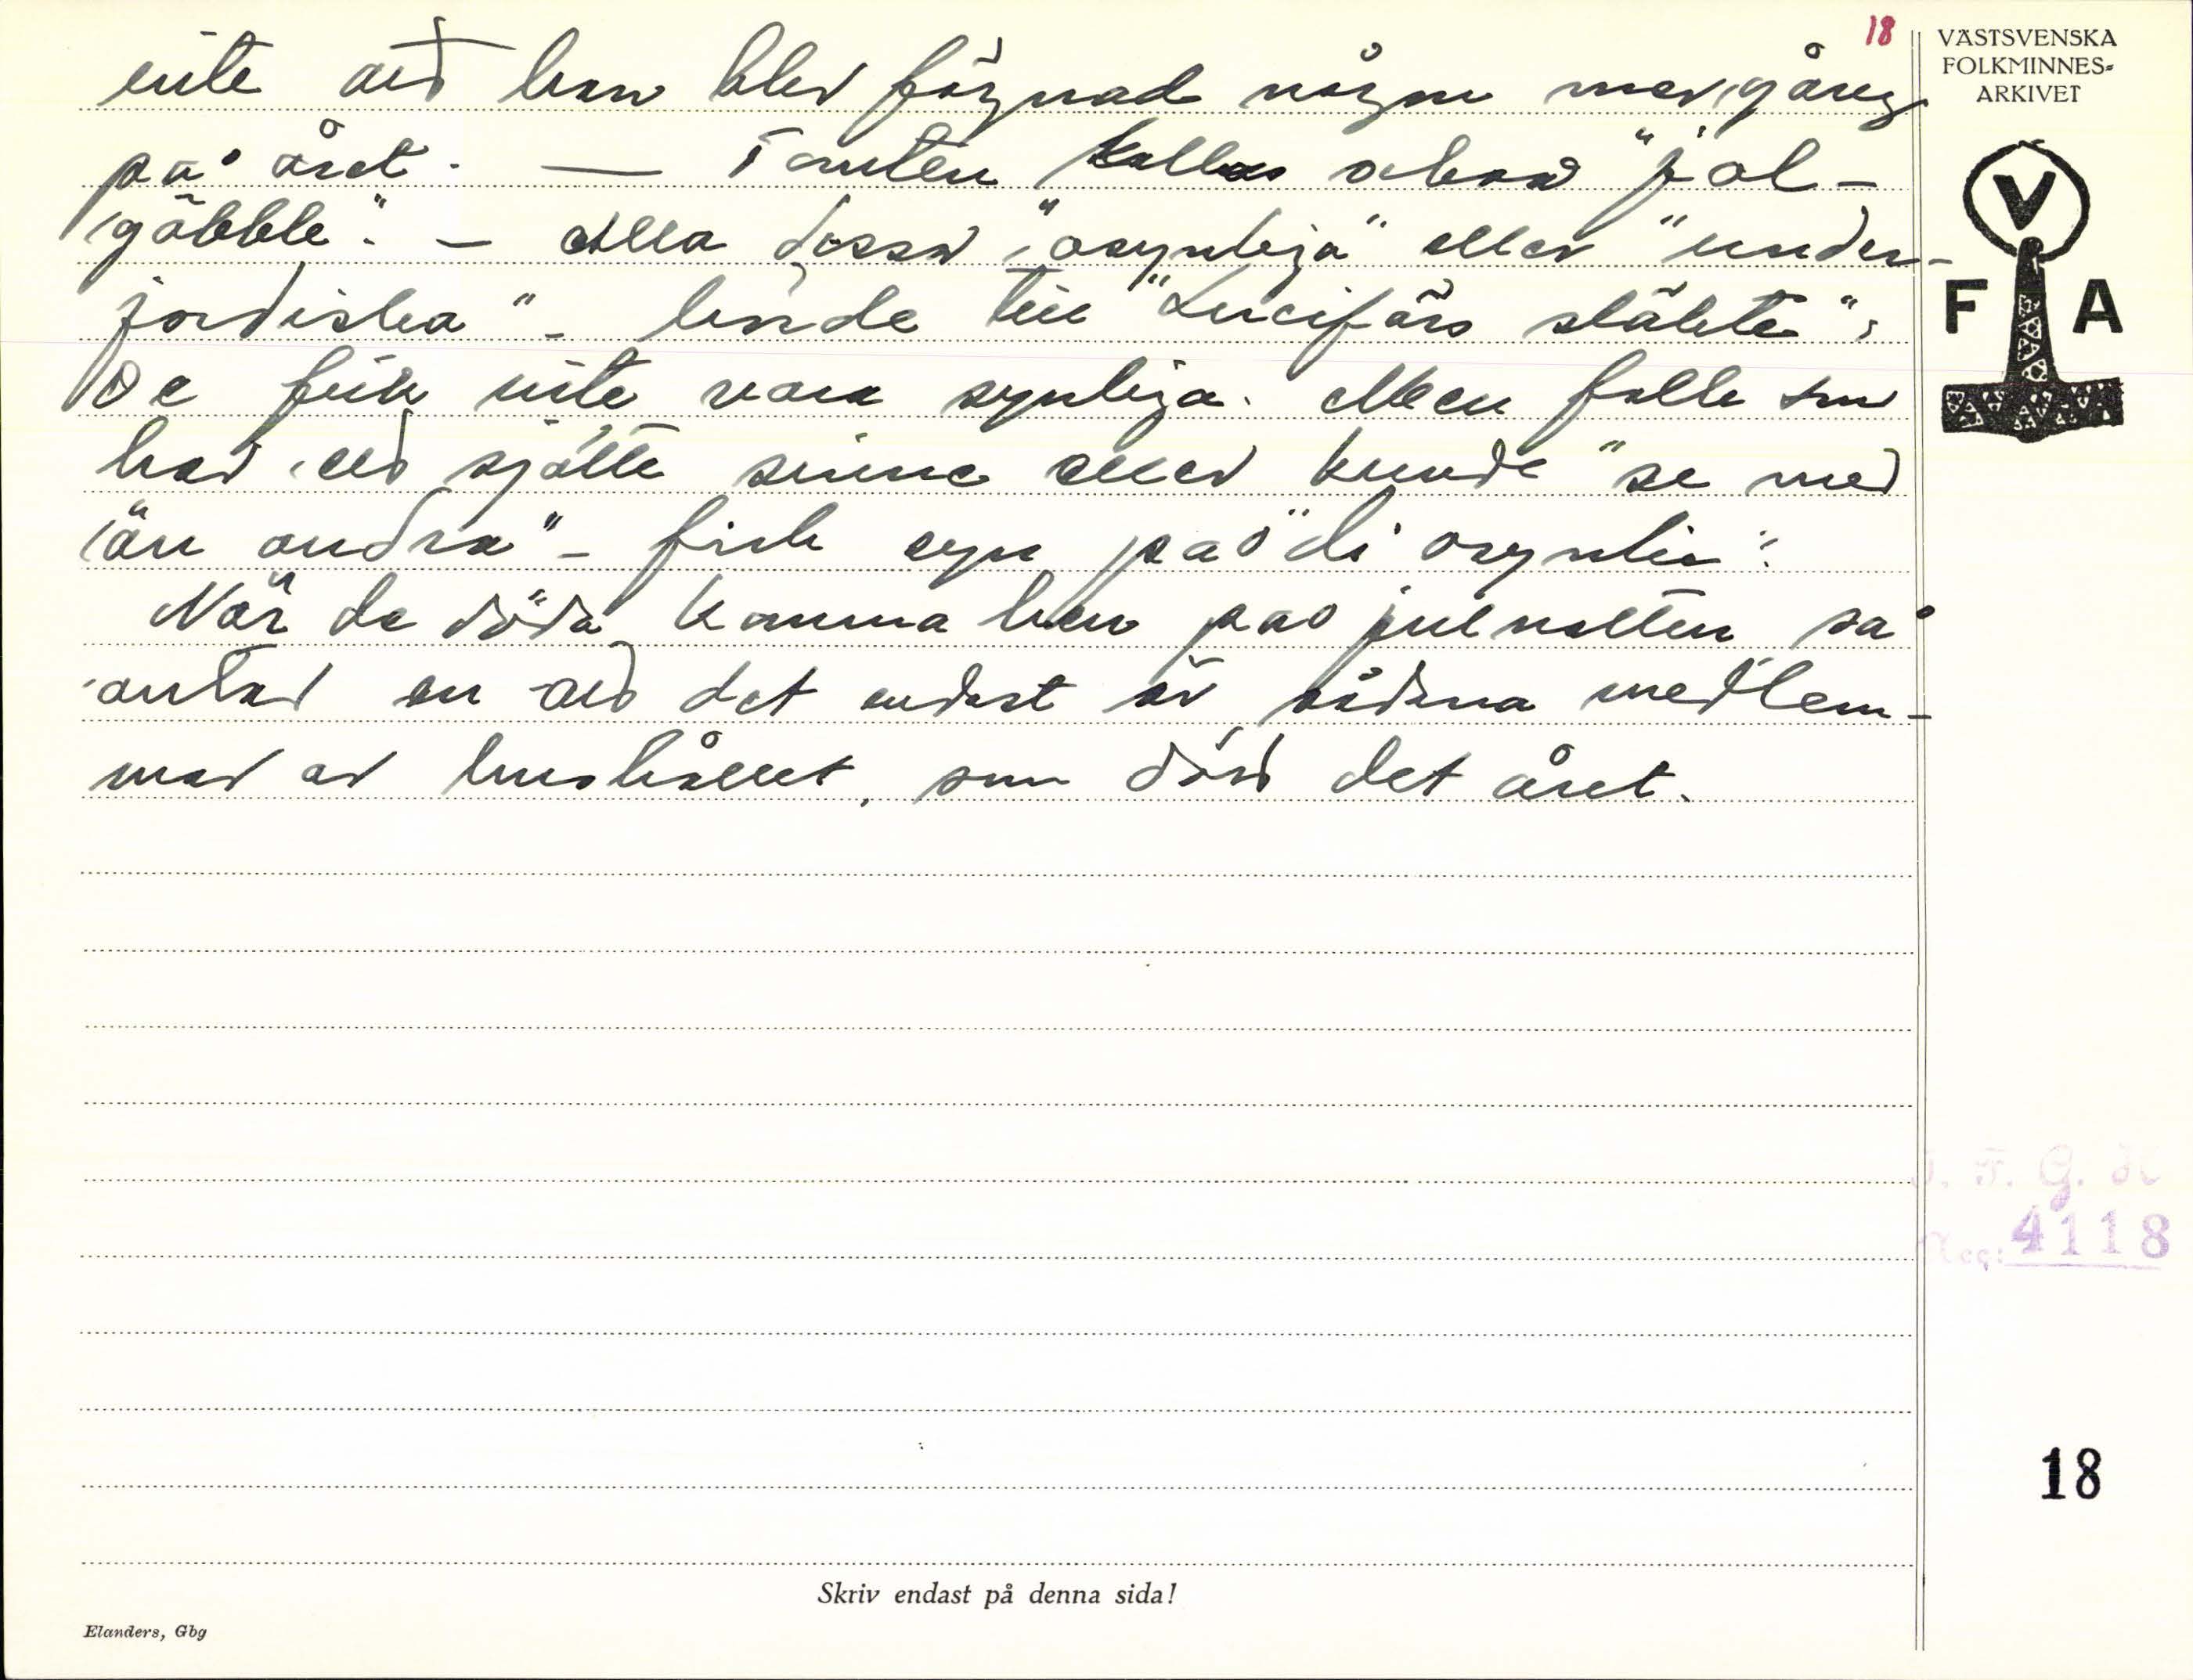 18
VÄSTSVENSKA
FOLKMINNES-
ARKIVET
inte att han blev fägnad någon mer gång
på året. — Tomten kallas också "jol-
gôbble". — Alla dessa "osynliga" eller "under-
jordiska" - hörde till "Lucifärs släkte";
De fick inte vara synliga. Men folk som
had ett sjätte sinne eller kunde "se med
än andra" - fick syn på "di osynlia".
När de döda komma hem på julnatten så
antar en att det endast är sådana medlem-
mar av hushållet, som dött det året.
V
F A
G.
4118
18
Skriv endast på denna sida!
Elanders, Gbg